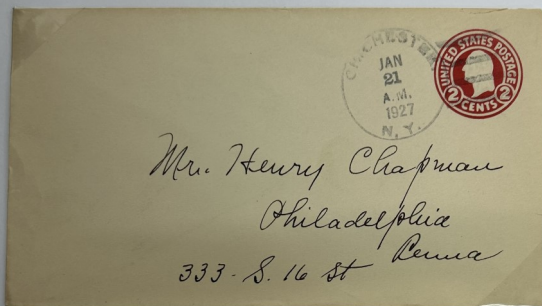 CHICHESTER
JAN
21
A.M.
1927
N.Y.
UNITED STATES POSTAGE
2 CENTS 2
Mr. Henry Chapman
Philadelphia
Penna
333 - S. 16 St